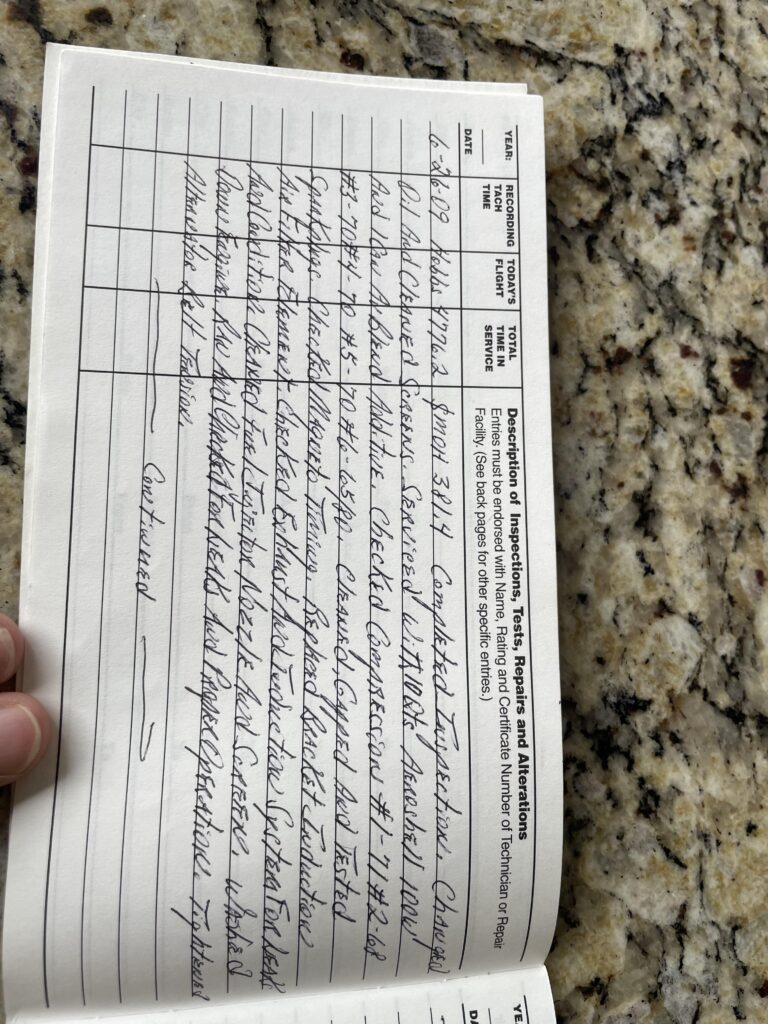 YEAR:
RECORDING TACH TIME
TODAY'S FLIGHT
TOTAL TIME IN SERVICE
Description of Inspections, Tests, Repairs and Alterations
Entries must be endorsed with Name, Rating and Certificate Number of Technician or Repair
Facility. (See back pages for other specific entries.)
DATE
6-26-09 Hobbs 4776.2 SMOH 381.4 Completed Inspection. Changed
Oil And Cleaned Screens Serviced With 10 Qts Aeroshell 100W
And 1 Can Additive Checked Compression #1-71 #2-68
#3-70 #4-70 #5-70 #6-65/80. Cleaned Gapped And Tested
Spark Plugs Checked Magneto Timing. Replaced Bracket Induction
Air Filter Element Checked Exhaust And Induction System For Leaks
And Condition Cleaned Fuel Injector Nozzle And Screen Washed
Down Engine Run And Checked For Leaks And Proper Operation. Tightened
Alternator Belt Tension.
Continued
YE
DA